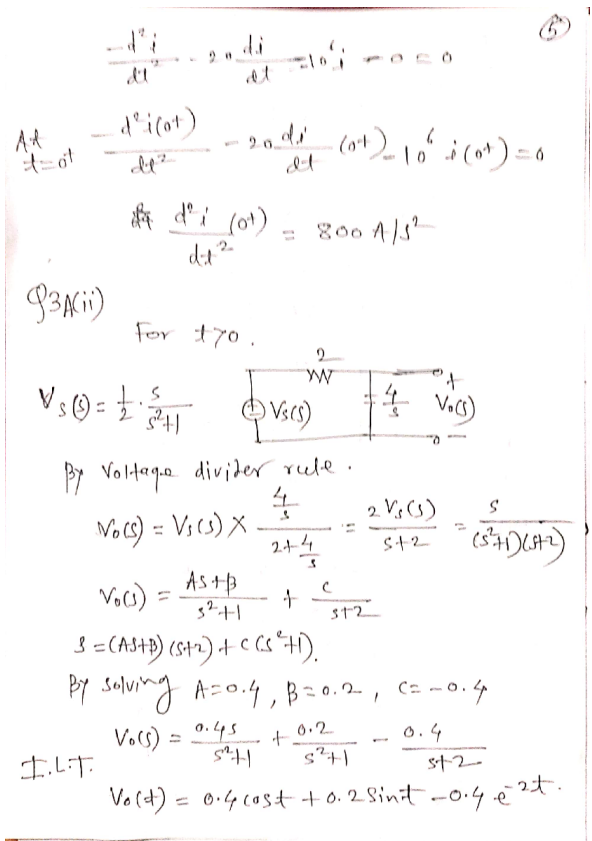 5
-d²i/dt² - 20 di/dt - 10⁶ i - 0 = 0
At t=0+ -d²i(0+)/dt² - 20 di/dt (0+) - 10⁶ i(0+) = 0
d²i/dt² (0+) = 800 A/s²
Q3A(ii)
For t>0.
2
Vs(s) = 1/2 · s/s²+1 Vs(s) 4/s + Vo(s) -
By Voltage divider rule.
Vo(s) = Vs(s) × (4/s)/(2+4/s) = 2Vs(s)/s+2 = s/(s²+1)(s+2)
Vo(s) = As+B/s²+1 + C/s+2
s = (As+B)(s+2) + C(s²+1).
By solving A=0.4, B=0.2, C=-0.4
Vo(s) = 0.4s/s²+1 + 0.2/s²+1 - 0.4/s+2
I.L.T.
Vo(t) = 0.4 cost + 0.2 Sint - 0.4 e⁻²ᵗ.